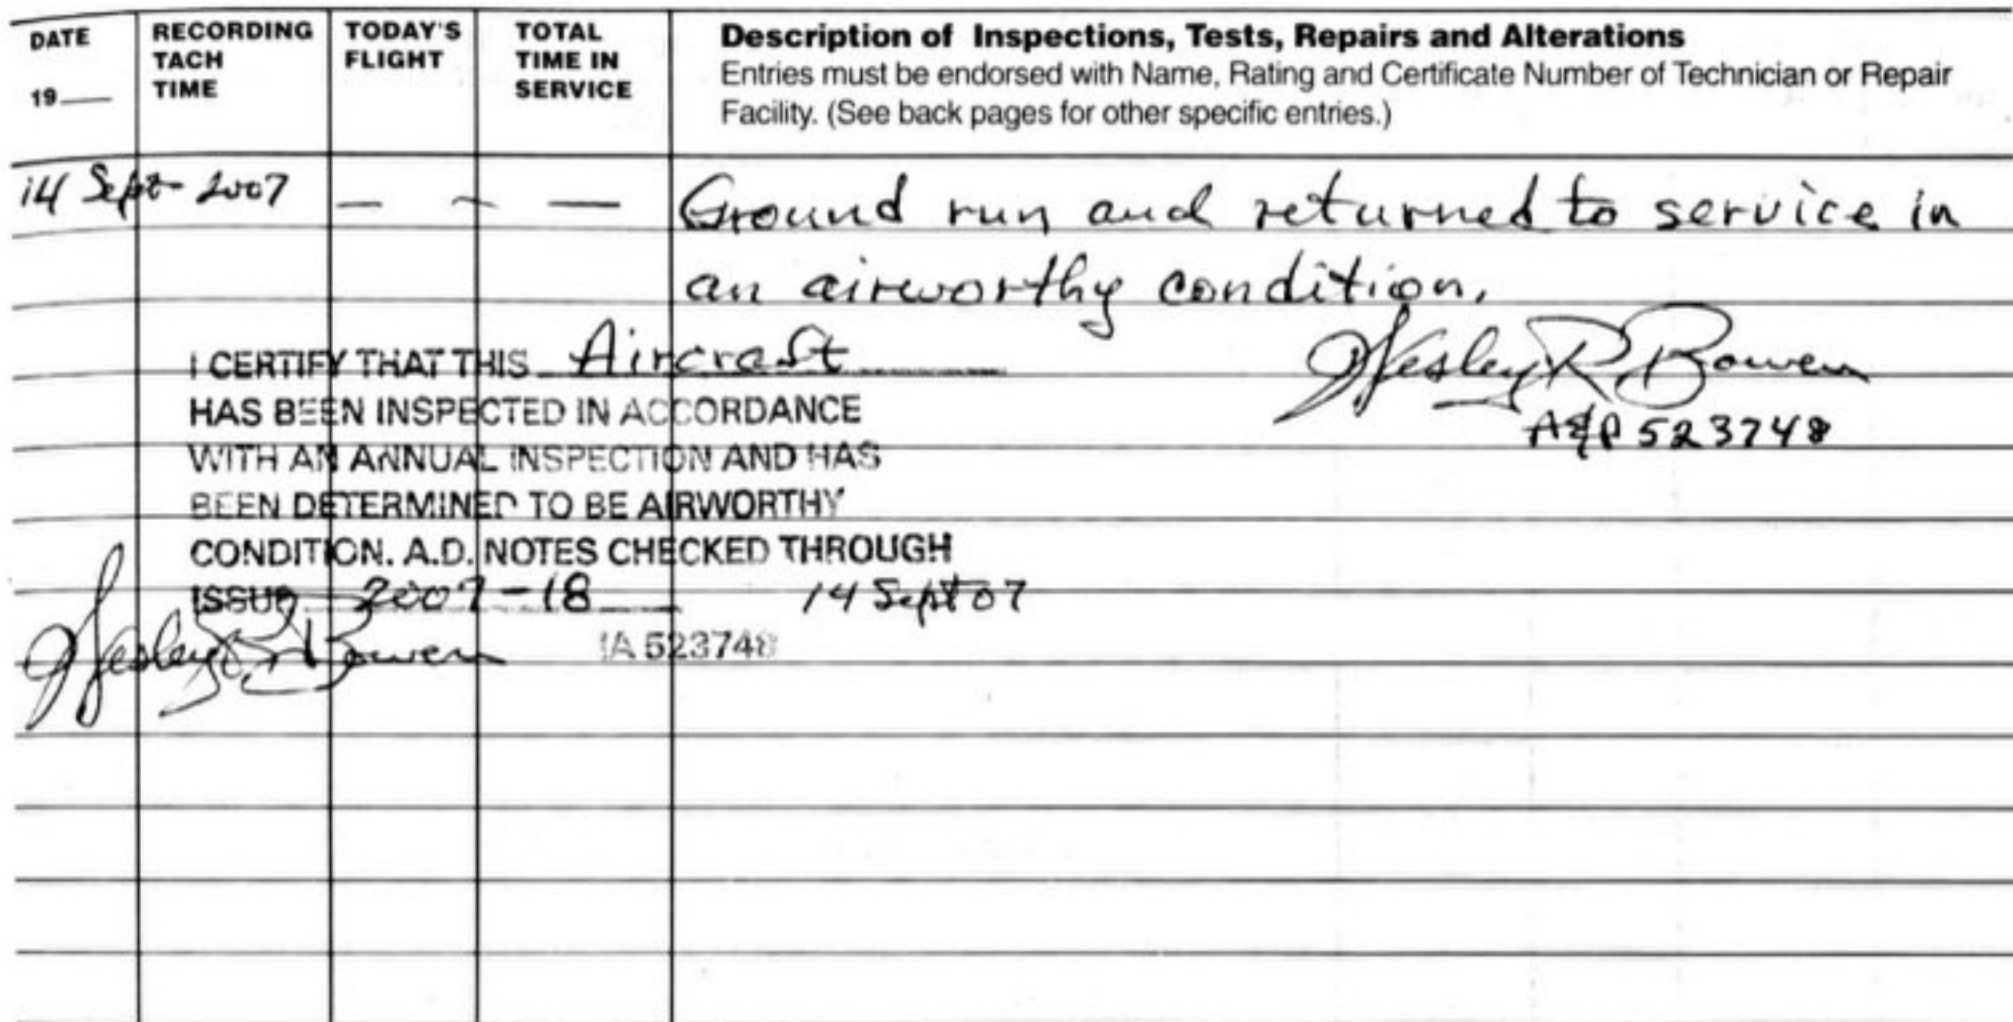 DATE
19
RECORDING
TACH
TIME
TODAY'S
FLIGHT
TOTAL
TIME IN
SERVICE
Description of Inspections, Tests, Repairs and Alterations
Entries must be endorsed with Name, Rating and Certificate Number of Technician or Repair
Facility. (See back pages for other specific entries.)
14 Sept 2007 — ~ — Ground run and returned to service in
an airworthy condition.
Wesley R. Bowen
A&P 523748
I CERTIFY THAT THIS Aircraft
HAS BEEN INSPECTED IN ACCORDANCE
WITH AN ANNUAL INSPECTION AND HAS
BEEN DETERMINED TO BE AIRWORTHY
CONDITION. A.D. NOTES CHECKED THROUGH
ISSUE 2007-18 14 Sept 07
Wesley R. Bowen IA 523748